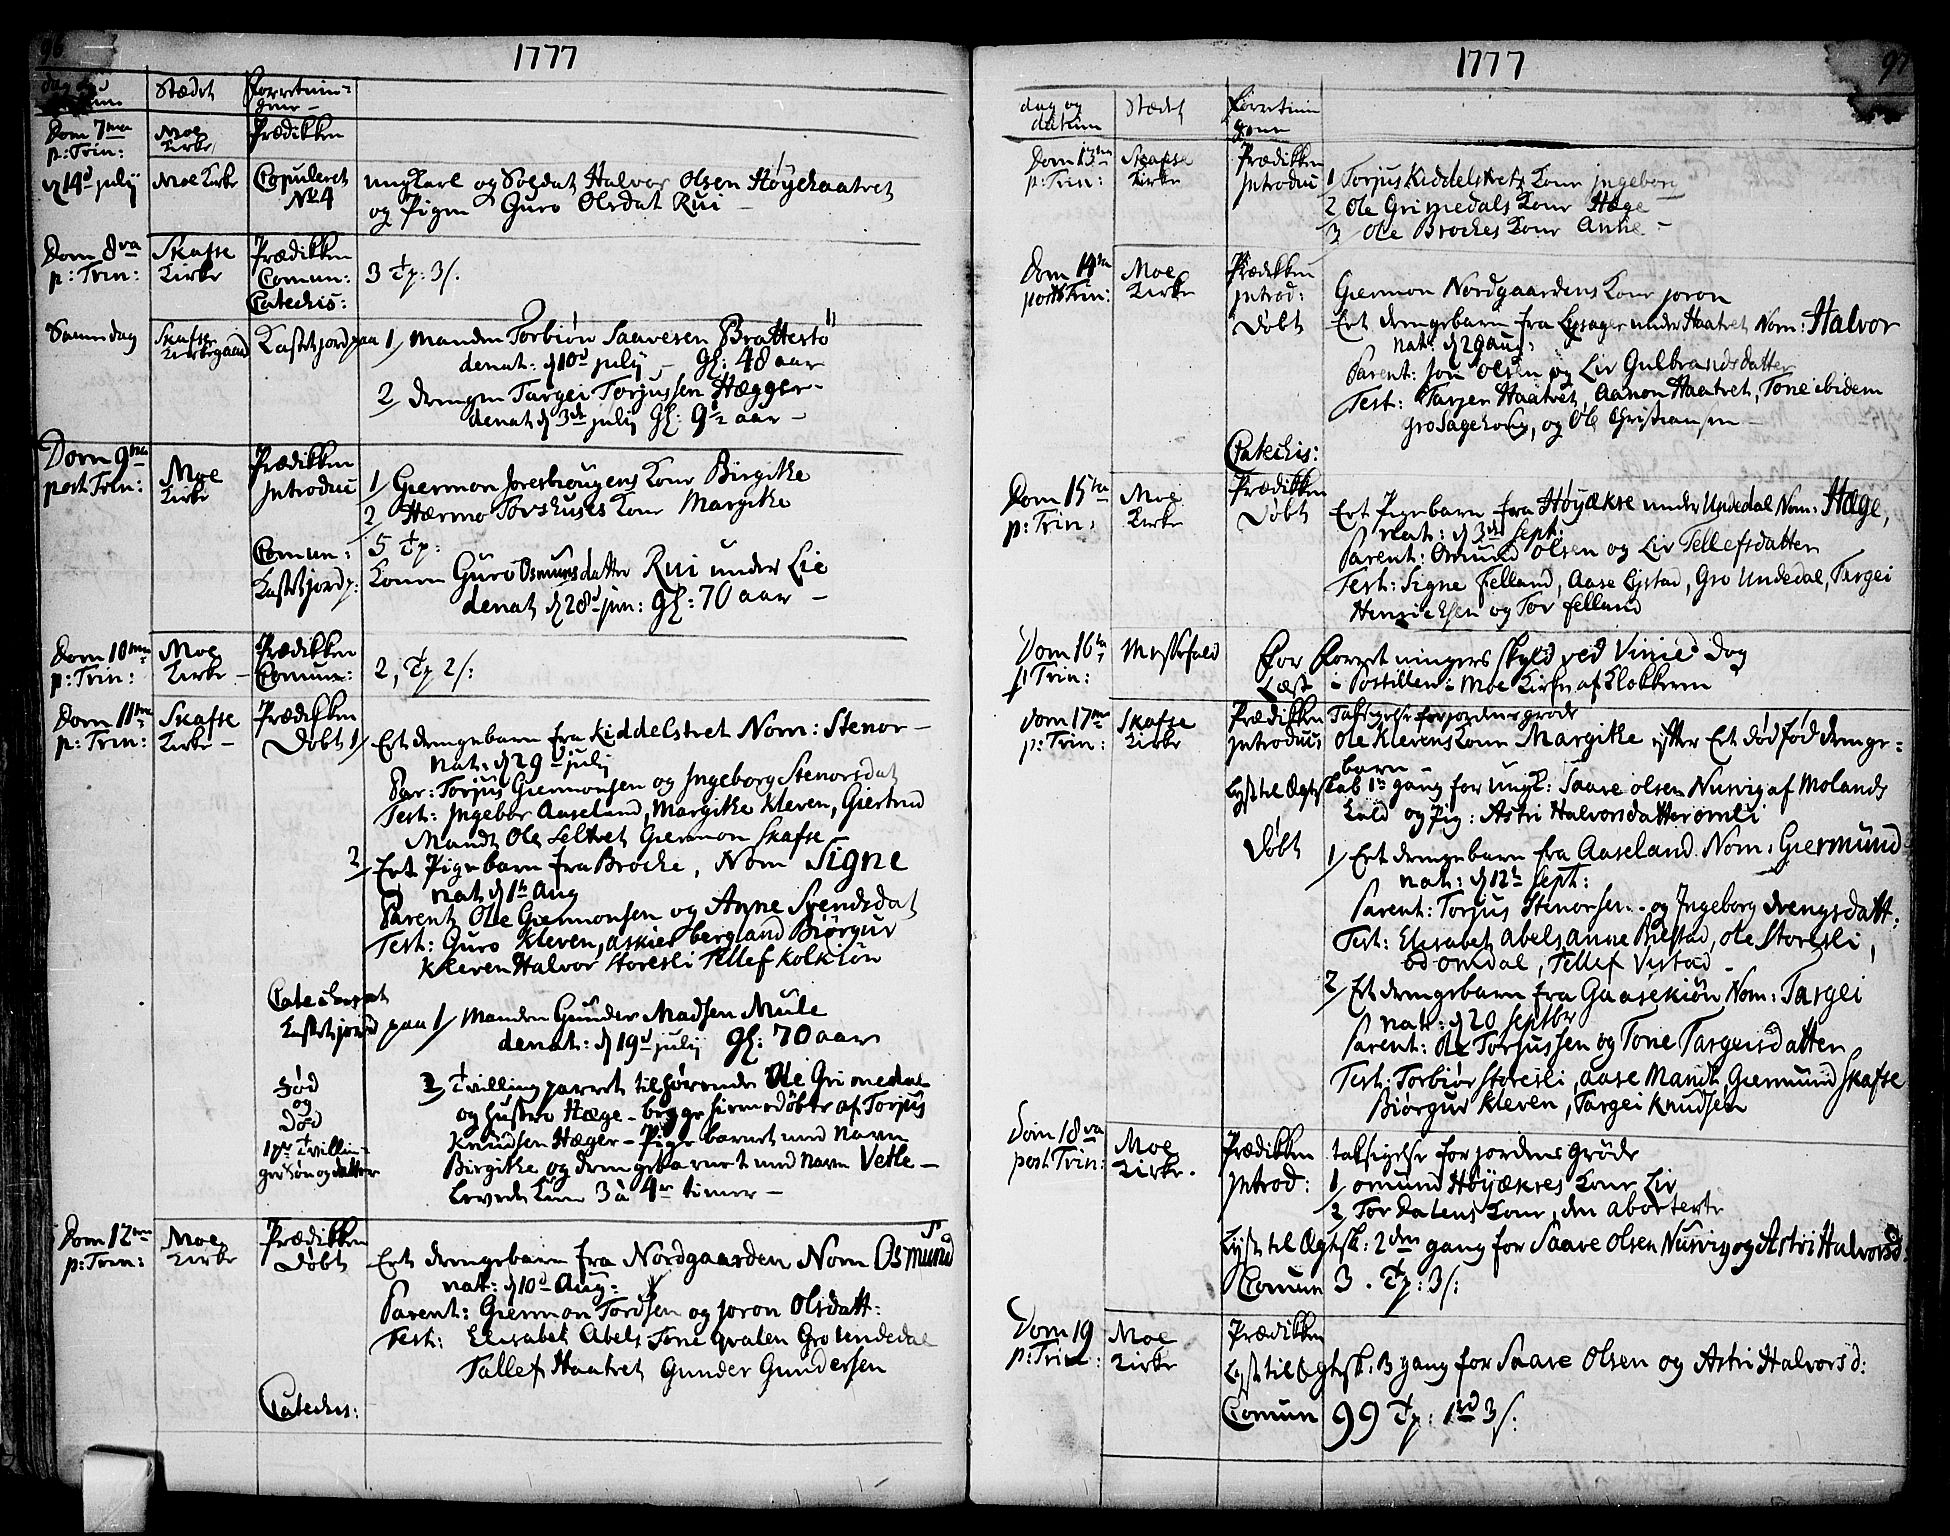 96
1777
dag og datum
Stædet
Forretninger
Dom 7ma p: Trin:
Moe Kirke
Prædikken
d 14d julij
Moe Kirke
Copuleret No 4
ungkarl og Soldat Halvor Olsen Høyehaatvet
og Pigen Guro Olsdat Rui
Dom 8va p: Trin:
Skafse Kirke
Prædikken
Comun:
Catechis:
3 Tp: 3/:
Samme dag
Skafse Kirkegaard
Kastet jord paa 1/ Manden Torbiøn Saavesen Brattestø
denat: d 10d julij – Gl: 48 aar
2/ drengen Targei Torjussen Hægger –
denat d 3de julij Gl: 9½ aar –
Dom 9na post Trin:
Moe Kirke
Prædikken
Introduc
1/ Giermon Joreshougens Kone Birgitke
2/ Hærmo Torshuses Kone Margitke
Comun: 5 Tp:
Kastet jord p: Konen Guro Osmunsdatter Rui under Lie
denat d 28d jun: gl: 70 aar –
Dom 10ma p: Trin:
Moe Kirke –
Prædikken
Comun:
2, Tp 2/:
Dom 11ma p: Trin:
Skafse Kirke –
Prædikken
Døbt 1/ Ett drengebarn fra Kiddelstvet Nom: Stenor –
nat: d 29d julij
Par: Torjus Giermonsen og Ingeborg Stenorsdat
Test: Ingebor Aaseland, Margitke Kleven, Giertrud
Mandt Ole Seltvet Giermon Skafse –
2/ Ett Pigebarn fra Brocke, Nom Signe
nat d 1ste Aug
Parent Ole Giermonsen og Anne Svendsdat
Test: Guro Kleven, askier bergland Biørgur
Kleven Halvor Storesli Tellef Kolkiøn
Catechiseret
Kastet jord paa 1/ Manden Gunder Madsen Mule
denat: d 19d julij gl: 70 aar
Fød og Død
tvillinger Søn og datter
2/ Tvilling parret tilhørende Ole Grimedal
og hustro Hæge – begge hiemedøbte af Torjus
Knudsen Hæger – Pige barnet med Navn
Birgitke og drengebarnet med navn Vetle –
Levede kun 3 à 4re timer –
Dom 12ma p: Trin:
Moe Kirke
Prædikken
Døbt
Ett drengebarn fra Nordgaarden Nom Osmund
nat: d 10d Aug:
Parent: Giermon Tordsen og joron Olsdatt:
Test: Elisabet Abels Tone qvalen Gro Undedal
Tallef Haatvet Gunder Gundersen
Catechis:
97
1777
dag og datum
Stædet
Forretningenn
Dom 13na p: Trin:
Skafse Kirke
Prædikken
Introduc
1 Torjus Kiddelstvets Kone Ingeborg
2 Ole Grimedals Kone Hæge
3/ Ole Brockes Kone Anne –
Dom 14na post Trin:
Moe Kirke
Prædikken
Introd: Giermon Nordgaardens Kone joron
Døbt Ett drengebarn fra Lysager under Haatvet Nom: Halvor
nat: d 29 aug:
Parent: Jon Olsen og Liv Gulbrandsdatter
Test: Tarjer Haatvet, Aanon Haatvet, Tone ibidem
Gro Sagehoug, og Ole Christiansen –
Catechis:
Dom 15na p: Trin:
Moe Kirke
Prædikken
Døbt Ett Pigebarn fra Høyækse under Undedal Nom: Hæge,
nat: d 3de Sept:
Parent: Omund Olsen og Liv Tellefsdatter
Test: Signe Felland, Aase Lystad, Gro Undedal, Targei
Henrichsen og Tor Felland
Dom 16ta p Trin:
Messefald
For Forretningers skyld ved Vinie dog
Læst i Postillen i Moe Kirke af Klokkeren
Dom 17ma p: Trin:
Skafse Kirke
Prædikken Taksigelse for jordens grøde
Introducs Ole Klevens Kone Margitke efter Ett død fød drenge-
barn –
Lyst til Ægteskab 1te gang for Ungk: Saave Olsen Nusvig af Molands
Kald og Pig: Astri Halvorsdatter omli
Døbt 1/ Ett drengebarn fra Aaseland. Nom: Giermund
nat: d 12te Sept:
Parent: Torjus Stenorsen. og Ingeborg drengsdatt:
Test: Elisabet Abels Anne Bilstad, Ole Storesli,
od omdal, Tellef Vistad –
2/ Ett drengebarn fra Gaasekiøn Nom: Targei
nat: d 20 Septbr
Parent: Ole Torjussen og Tone Targeisdatter
Test: Torbiør Storesli, aase Mandt, Giermund Skafse
Biørgur Kleven, Targei Knudsen
Dom 18va post Trin:
Moe Kirke.
Prædikken taksigelse for jordens grøde
Introd: 1/ Omund Høyækses Kone Liv
2/ Tor Dalens Kone, den aborterte
Lyst til Ægtsk: 2den gang for Saave Olsen Nusvig og Astri Halvorsd:
Comun 3. Tp: 3/:
Dom 19 p: Trin:
Moe Kirke
Prædikken
Lyst til Ægtesk: 3 gang for Saave Olsen og Astri Halvorsd:
Comun 99 Tp: 1rd 3/: